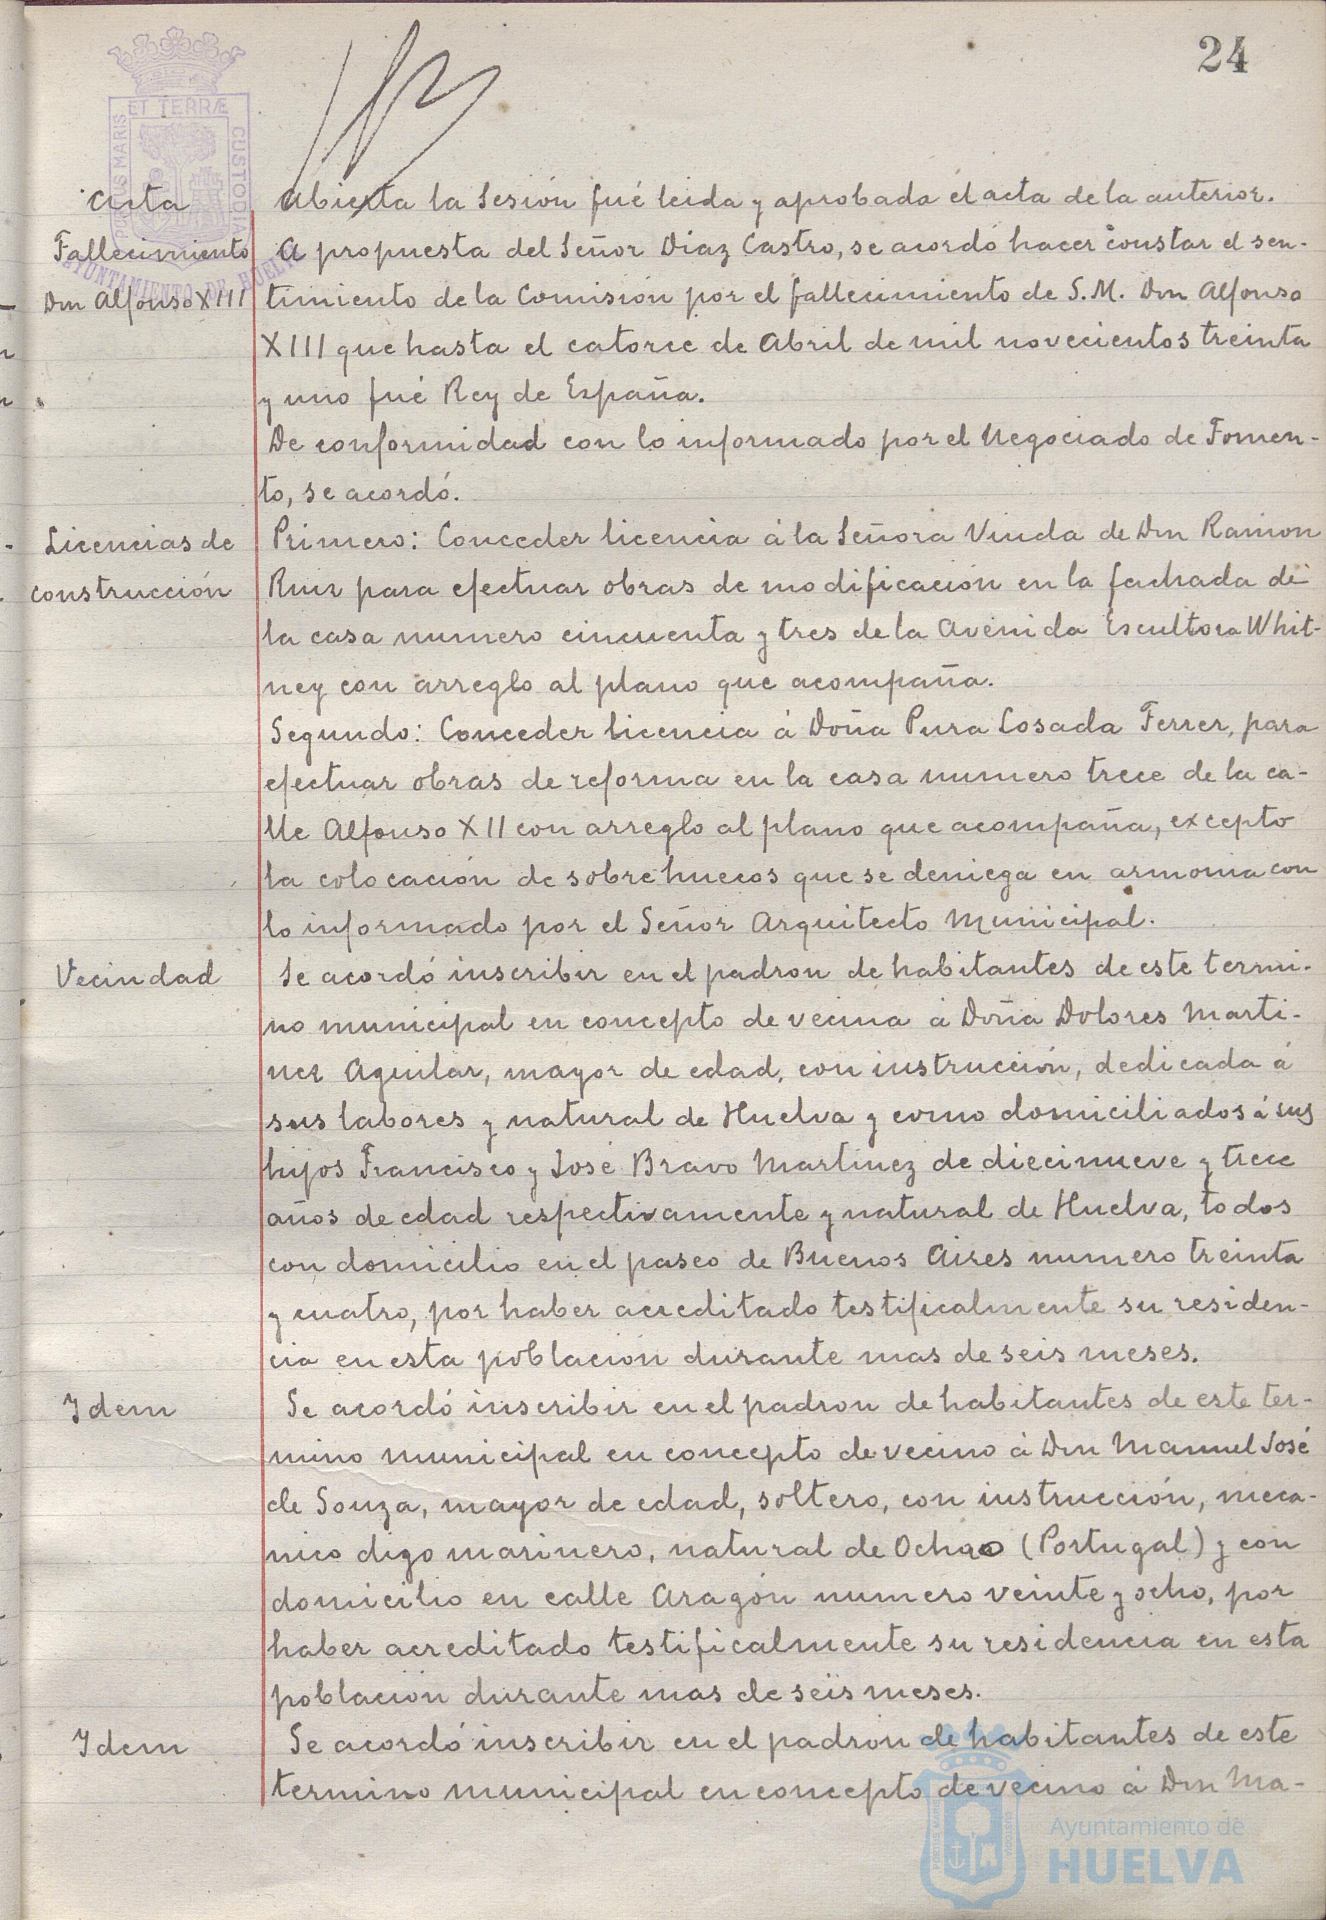 24
PORTUS MARIS ET TERRÆ CUSTODIA
AYUNTAMIENTO DE HUELVA
Acta
Abierta la Sesión fué leida y aprobada el acta de la anterior.
Fallecimiento
Don Alfonso XIII
A propuesta del Señor Diaz Castro, se acordó hacer constar el sen-
timiento de la Comisión por el fallecimiento de S.M. Don Alfonso
XIII que hasta el catorce de Abril de mil novecientos treinta
y uno fué Rey de España.
De conformidad con lo informado por el Negociado de Fomen-
to, se acordó.
Licencias de
construcción
Primero: Conceder licencia á la Señora Viuda de Don Ramon
Ruiz para efectuar obras de modificación en la fachada de
la casa numero cincuenta y tres de la Avenida Escultora Whit-
ney con arreglo al plano que acompaña.
Segundo: Conceder licencia á Doña Pura Losada Ferrer, para
efectuar obras de reforma en la casa numero trece de la ca-
lle Alfonso XII con arreglo al plano que acompaña, excepto
la colocación de sobrehuecos que se deniega en armonia con
lo informado por el Señor Arquitecto Municipal.
Vecindad
Se acordó inscribir en el padron de habitantes de este termi-
no municipal en concepto de vecina á Doña Dolores Marti-
nez Aguilar, mayor de edad, con instrucción, dedicada á
sus labores y natural de Huelva y como domiciliados á sus
hijos Francisco y José Bravo Martinez de diecinueve y trece
años de edad respectivamente y natural de Huelva, todos
con domicilio en el paseo de Buenos Aires numero treinta
y cuatro, por haber acreditado testificalmente su residen-
cia en esta población durante mas de seis meses.
Idem
Se acordó inscribir en el padron de habitantes de este ter-
mino municipal en concepto de vecino á Don Manuel José
de Souza, mayor de edad, soltero, con instrucción, meca-
nico digo marinero, natural de (Portugal) y con
domicilio en calle Aragón numero veinte y ocho, por
haber acreditado testificalmente su residencia en esta
población durante mas de seis meses.
Idem
Se acordó inscribir en el padron de habitantes de este
termino municipal en concepto de vecino á Don Ma-
Ayuntamiento de
HUELVA